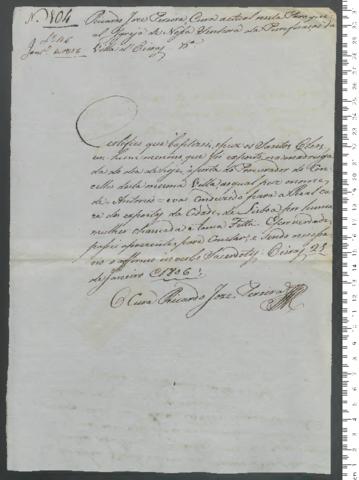 N. 104
Ricardo Joze Pereira, Cura actual nesta Parroquial
Igreja de Nossa Senhora da Purificação da
Villa de Oeiras
Certifico que baptizei, e puz os Santos Oleos
a hum menino que foi exposto na madrugada
do dia de hoje, à porta do Procurador do Concelho
desta mesma Villa; ao qual puz o nome
de Antonio: e vai conduzido para a Real Caza
dos expostos da Cidade de Lisboa por huma
mulher chamada
passei a prezente, para constar; e sendo necessario
o affirmo in verbo Sacerdotis. Oeiras 21
de Janeiro 1806.
O Cura Ricardo Joze Pereira